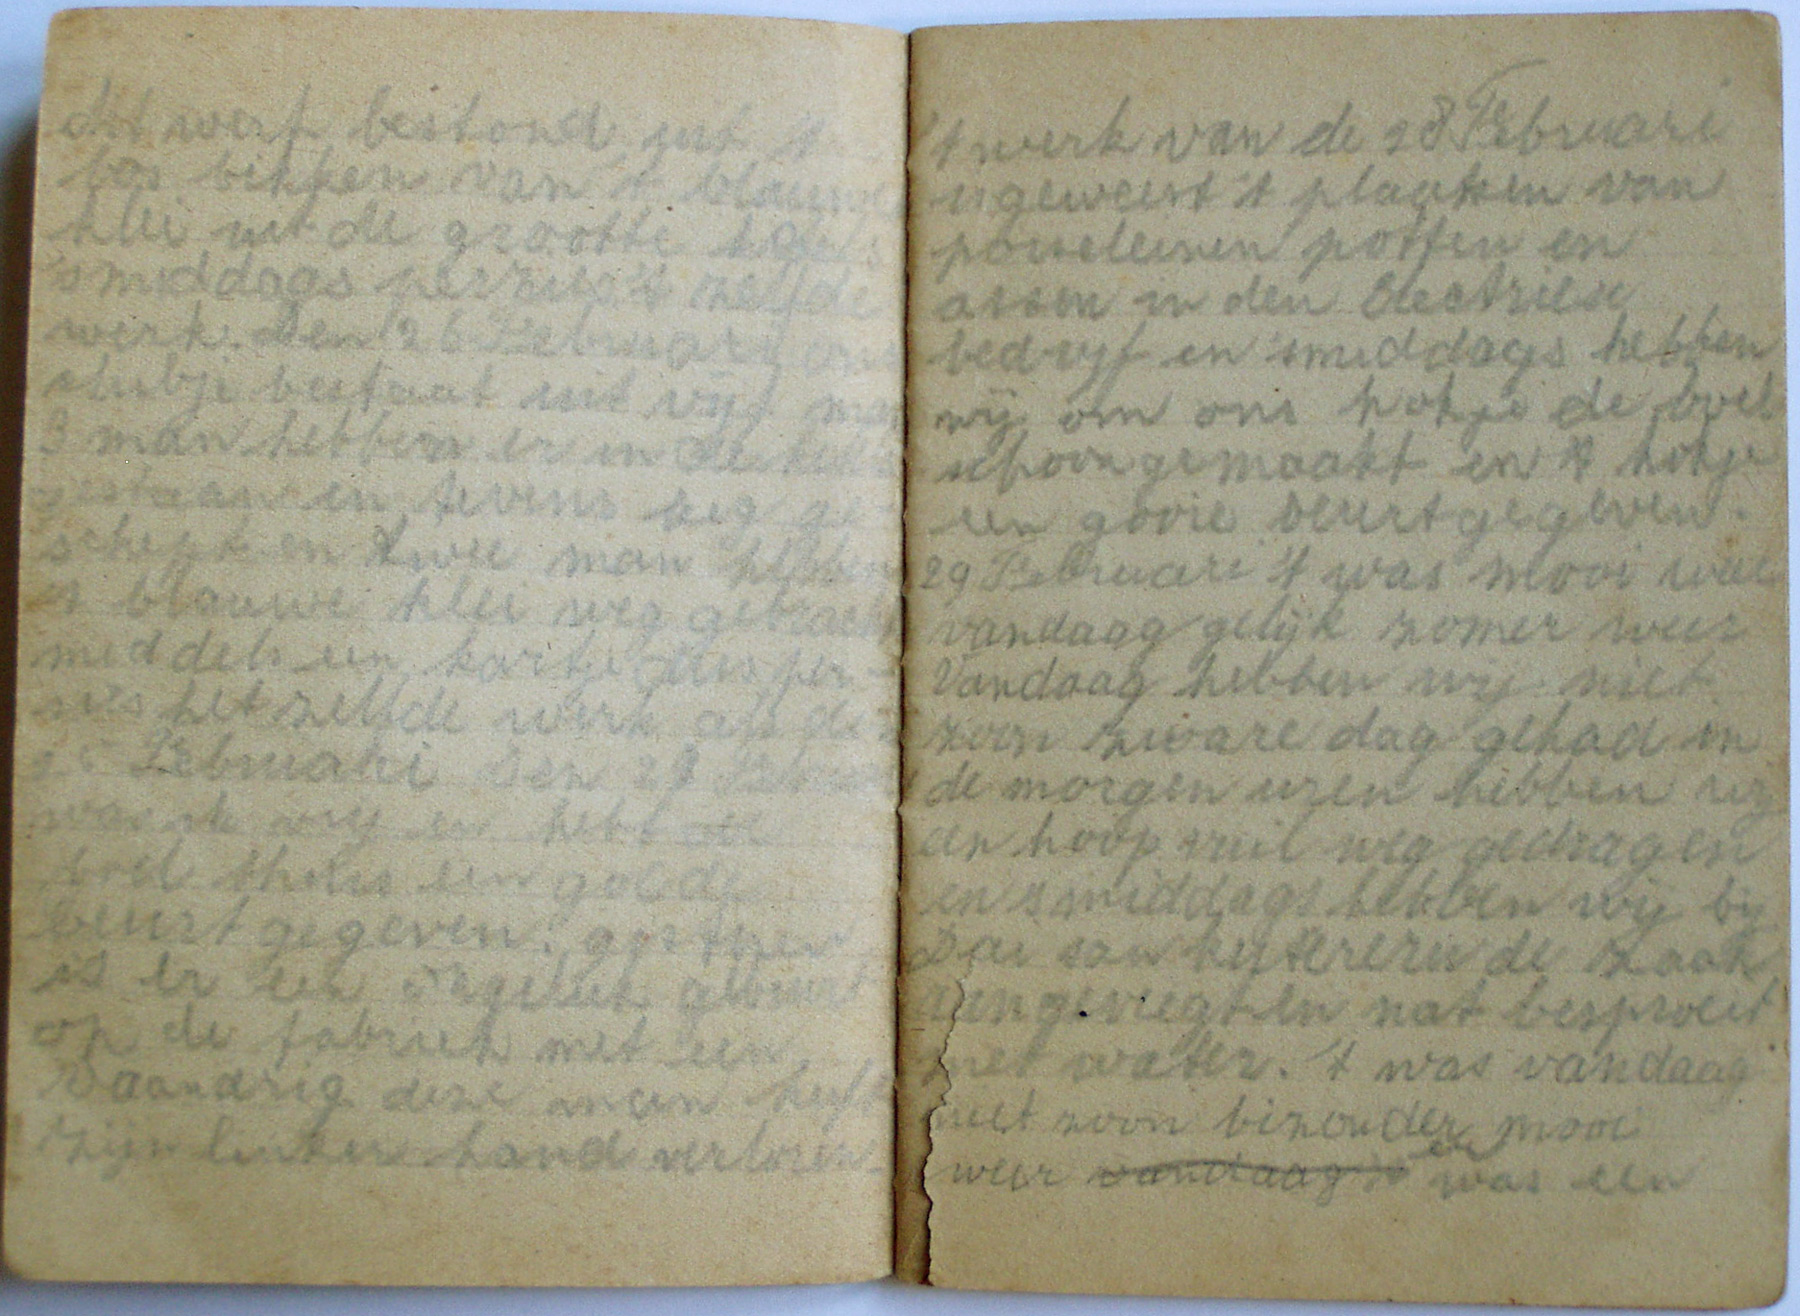 dit werk bestond uit 't
los bikken van 't blauwe
klei uit de grootte
smiddags precies 't zelfde
werk. Den 26 Februari ons
clubje bestaat uit vijf man
3 man hebben er in de
gestaan en tevens weg ge
schept en twee man hebben
't blauwe klei weg gebracht
middels een kartje dus per-
sies het zelfde werk als de
25 Februari Den 27 Februari
was ik vrij en hebt
boel thuis een goede
beurt gegeven. gisteren
is er een ongeluk gebeurt
op de fabriek met een
Vaandrig deze man heeft
zijn linker hand verloren.
't werk van de 28 Februari
is geweest 't plaatsen van
porseleinen potten en
assen in den Electriese
bedrijf en smiddags hebben
wij om ons hokje de boel
schoongemaakt en 't hokje
een gooie beurt gegeven.
29 Februari 't was mooi weer
vandaag gelijk zomer weer
Vandaag hebben wij niet
zoon zware dag gehad in
de morgen uren hebben wij
een hoop vuil weg gedragen
en smiddags hebben wij bij
Dai san de zaak
aangeveegt en nat besproeit
met water. 't was vandaag
niet zoon bizonder mooi
weer vandaag er was een